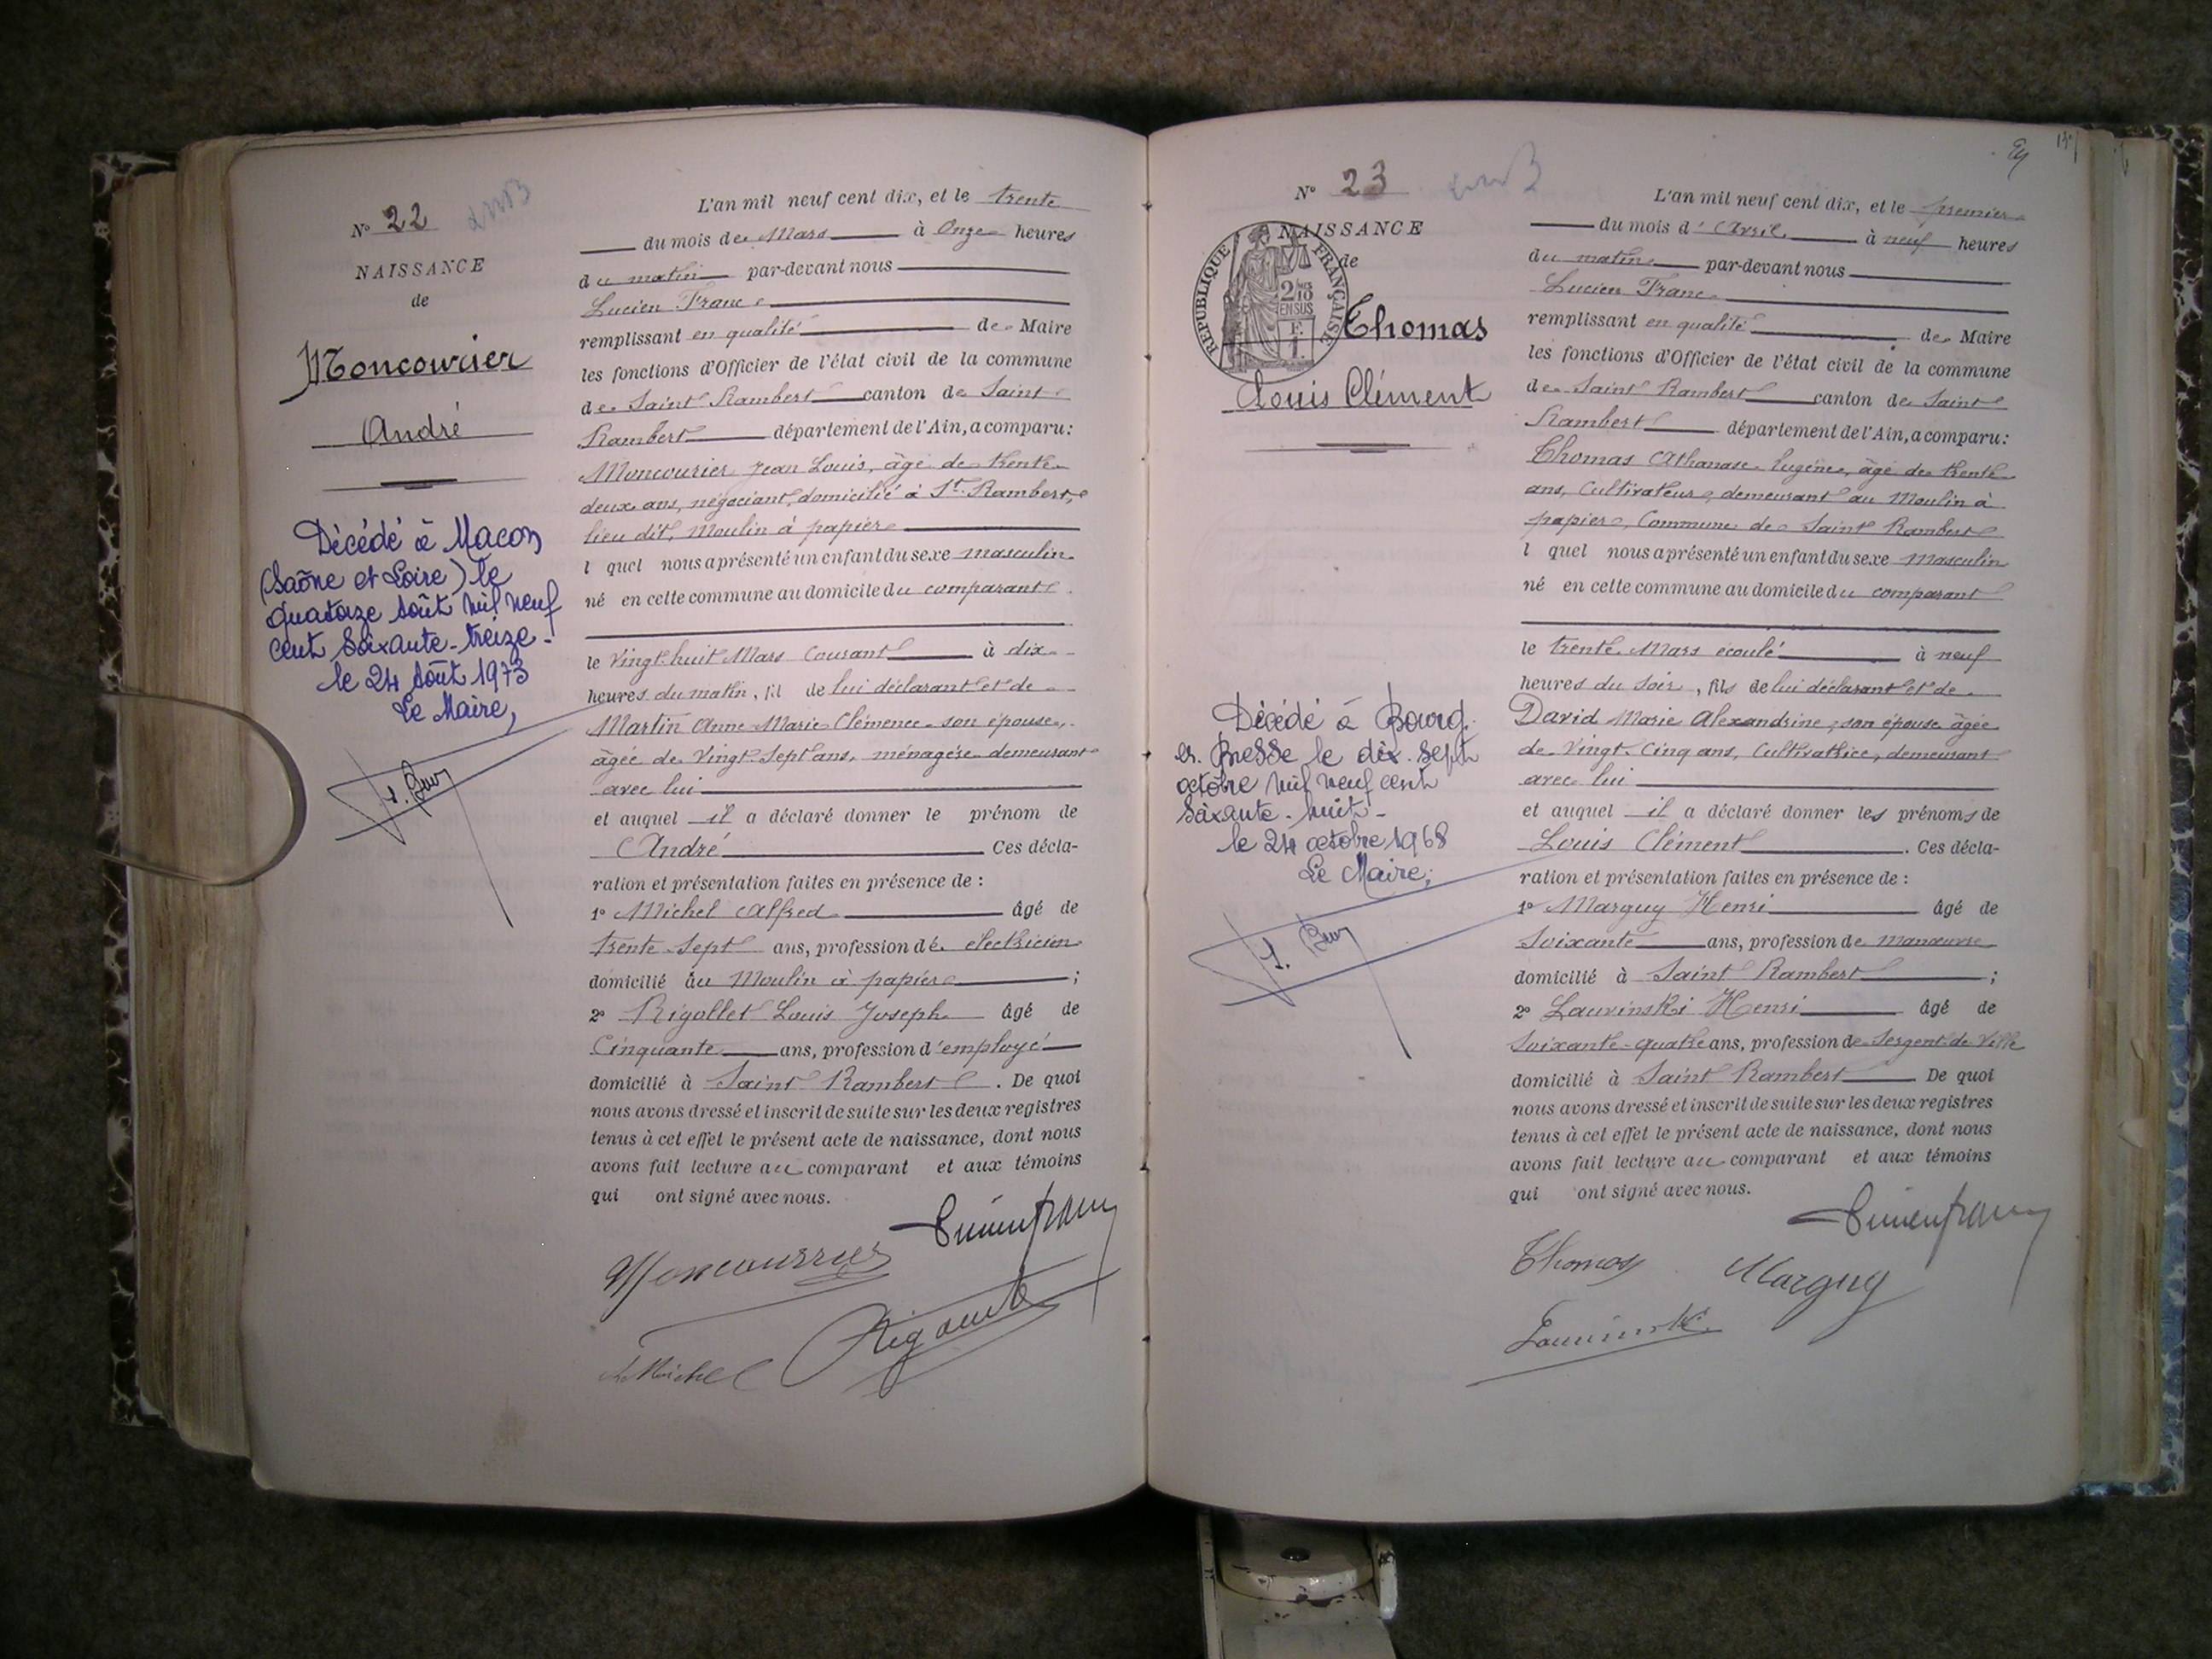 N° 22
NAISSANCE
de
Moncourier
André
Décédé à Macon
(Saône et Loire) le
quatorze Août mil neuf
cent soixante-treize-
le 24 Août 1973
Le Maire,
L'an mil neuf cent dix, et le trente
du mois de Mars à Onze heures
du matin par-devant nous
Lucien Franc
remplissant en qualité de Maire
les fonctions d'Officier de l'état civil de la commune
de Saint Rambert canton de Saint
Rambert département de l'Ain, a comparu:
Moncourier Jean Louis, âgé de trente
deux ans, négociant, domicilié à St. Rambert,
lieu dit, Moulin à papier
l quel nous a présenté un enfant du sexe masculin
né en cette commune au domicile du comparant
le Vingt-huit Mars Courant à dix
heures du matin, fil de lui déclarant et de
Martin Anne Marie Clémence son épouse,
âgée de Vingt-Sept ans, ménagère demeurant
avec lui
et auquel il a déclaré donner le prénom de
André Ces décla-
ration et présentation faites en présence de :
1° Michel Alfred âgé de
trente-Sept ans, profession d'électricien
domicilié au Moulin à papier ;
2° Rigollet Louis Joseph âgé de
Cinquante ans, profession d'employé
domicilié à Saint Rambert . De quoi
nous avons dressé et inscrit de suite sur les deux registres
tenus à cet effet le présent acte de naissance, dont nous
avons fait lecture au comparant et aux témoins
qui ont signé avec nous.
Lucien franc
Moncourrier
A Michel
N° 23
NAISSANCE
de
REPUBLIQUE FRANÇAISE
2/10
EN SUS
Thomas
Louis Clément
Décédé à Bourg.
en. Bresse le dix-sept
octobre mil neuf cent
soixante-huit-
le 24 octobre 1968
Le Maire,
L'an mil neuf cent dix, et le premier
du mois d'Avril à neuf heures
du matin par-devant nous
Lucien Franc
remplissant en qualité de Maire
les fonctions d'Officier de l'état civil de la commune
de Saint Rambert canton de Saint
Rambert département de l'Ain, a comparu:
Thomas Athanase Eugène, âgé de trente
ans, Cultivateur, demeurant au Moulin à
papier, Commune de Saint Rambert
l quel nous a présenté un enfant du sexe masculin
né en cette commune au domicile du comparant
le trente Mars écoulé à neuf
heures du soir, fils de lui déclarant et de
David Marie Alexandrine, son épouse âgée
de Vingt-Cinq ans, Cultivatrice, demeurant
avec lui
et auquel il a déclaré donner les prénoms de
Louis Clément . Ces décla-
ration et présentation faites en présence de :
1° Marguy Henri âgé de
Soixante ans, profession de manœuvre
domicilié à Saint Rambert ;
2° Lauvinski Henri âgé de
Soixante-quatre ans, profession de Sergent de Ville
domicilié à Saint Rambert De quoi
nous avons dressé et inscrit de suite sur les deux registres
tenus à cet effet le présent acte de naissance, dont nous
avons fait lecture au comparant et aux témoins
qui ont signé avec nous.
Lucien franc
Thomas Marguy